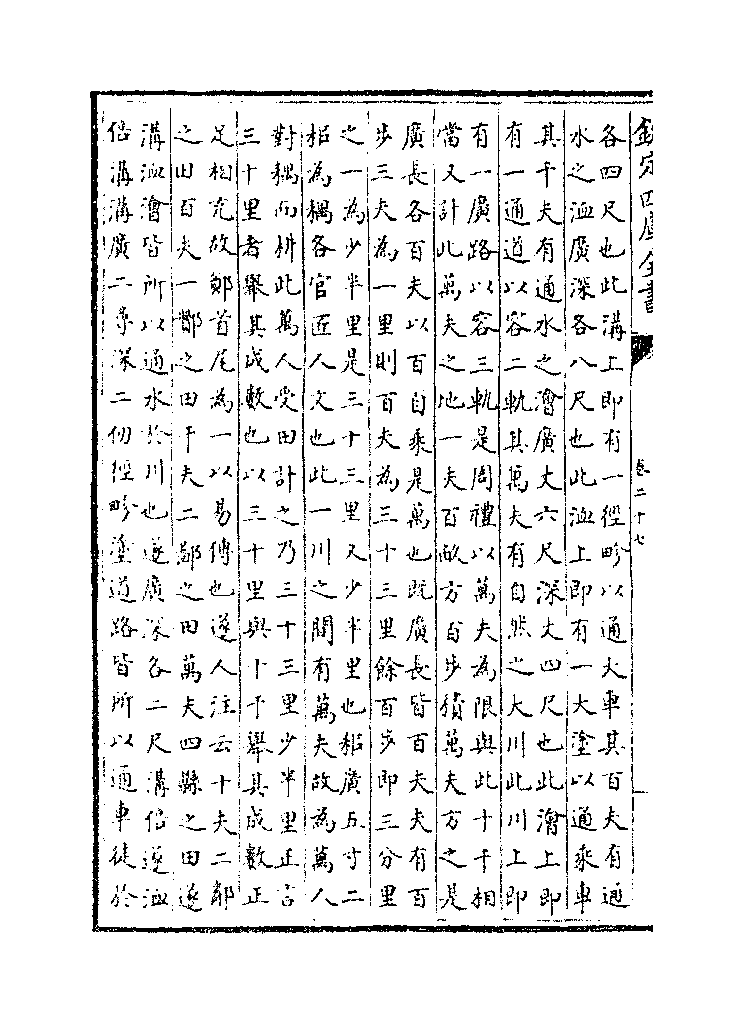 欽定四庫全書
卷二十七
各四尺也此溝上即有一徑畛以通大車其百夫有通
水之洫廣深各八尺也此洫上即有一大塗以通乘車
其千夫有通水之澮廣丈六尺深丈四尺也此澮上即
有一通道以容二軌其萬夫有自然之大川此川上即
有一廣路以容三軌是周禮以萬夫為限與此十千相
當又計此萬夫之地一夫百畝方百步積萬夫方之是
廣長各百夫以百自乘是萬也既廣長皆百夫夫有百
步三夫為一里則百夫為三十三里餘百步即三分里
之一為少半里是三十三里又少半里也耜廣五寸二
耜為耦各官匠人文也此一川之間有萬夫故為萬人
對耦而耕此萬人受田計之乃三十三里少半里正言
三十里者舉其成數也以三十里與十千舉其成數正
足相充故鄭首尾為一以易傳也遂人注云十夫二鄰
之田百夫一酇之田千夫二鄙之田萬夫四縣之田遂
溝洫澮皆所以通水於川也遂廣深各二尺溝倍遂洫
倍溝溝廣二尋深二仞徑畛塗道路皆所以通車徒於